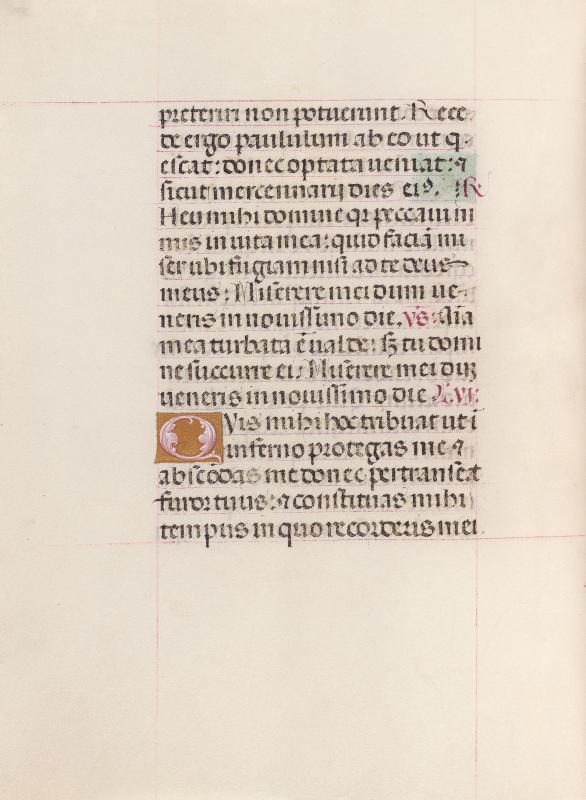 preteriri non potuerunt. Rece
de ergo paululum ab eo ut q
escat: donec optata ueniat: ⁊
sicut mercennarij dies eiꝰ. R
Heu mihi domine qꝛ peccaui ni
mis in uita mea: quid faciā mi
ser ubi fugiam nisi ad te deus
meus: Miserere mei dum ue
neris in nouissimo die. vs: Aīa
mea turbata ē ualde: sꝫ tu domi
ne succurre ei. Miserere mei dūꝫ
ueneris in nouissimo die
QVis mihi hoc tribuat ut ī
inferno protegas me ⁊
abscōdas me donec pertranseat
furor tuus: ⁊ constituas mihi
tempus in quo recorderis mei